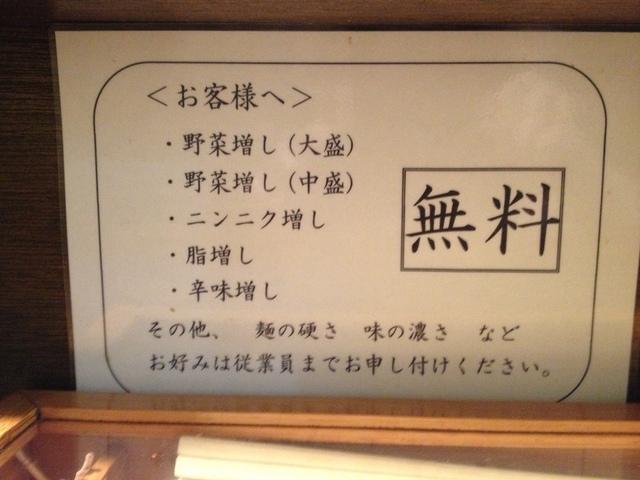 ＜お客様へ＞
・野菜増し（大盛）
・野菜増し（中盛）
・ニンニク増し
・脂増し
・辛味増し
無料
その他、　麺の硬さ　味の濃さ　など
お好みは従業員までお申し付けください。